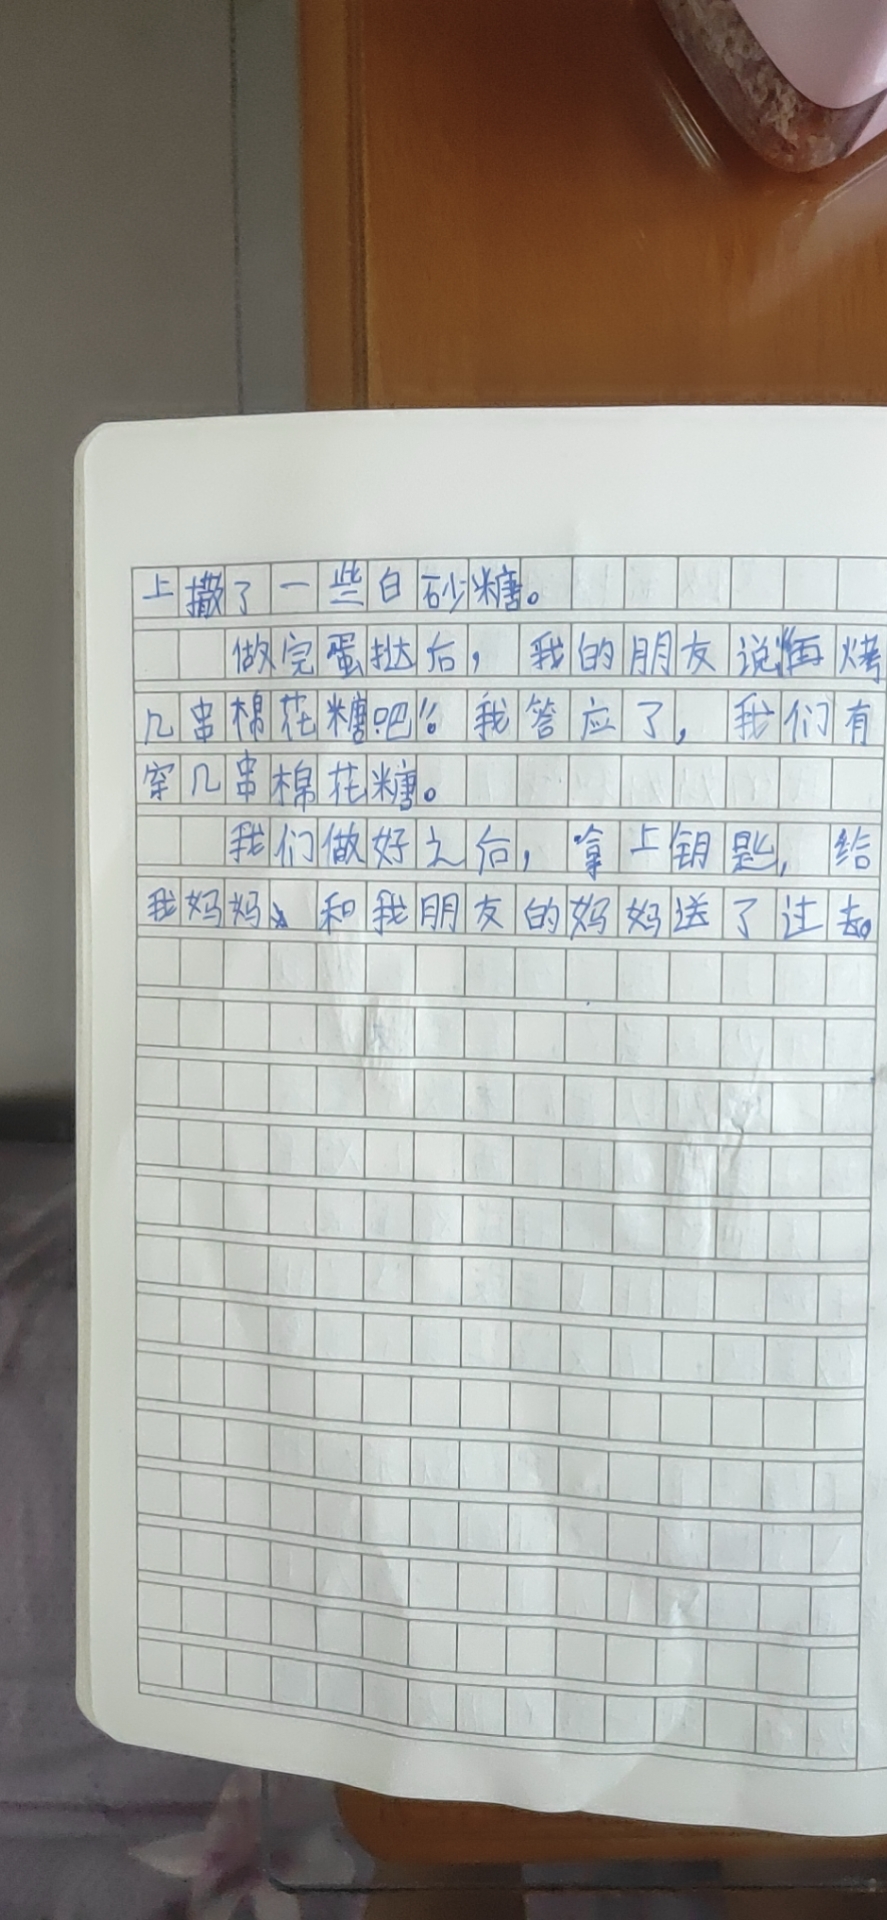 上撒了一些白砂糖。
做完蛋挞后，我的朋友说“再烤
几串棉花糖吧”。我答应了，我们有
穿几串棉花糖。
我们做好之后，拿上钥匙，给
我妈妈、和我朋友的妈妈送了过去。